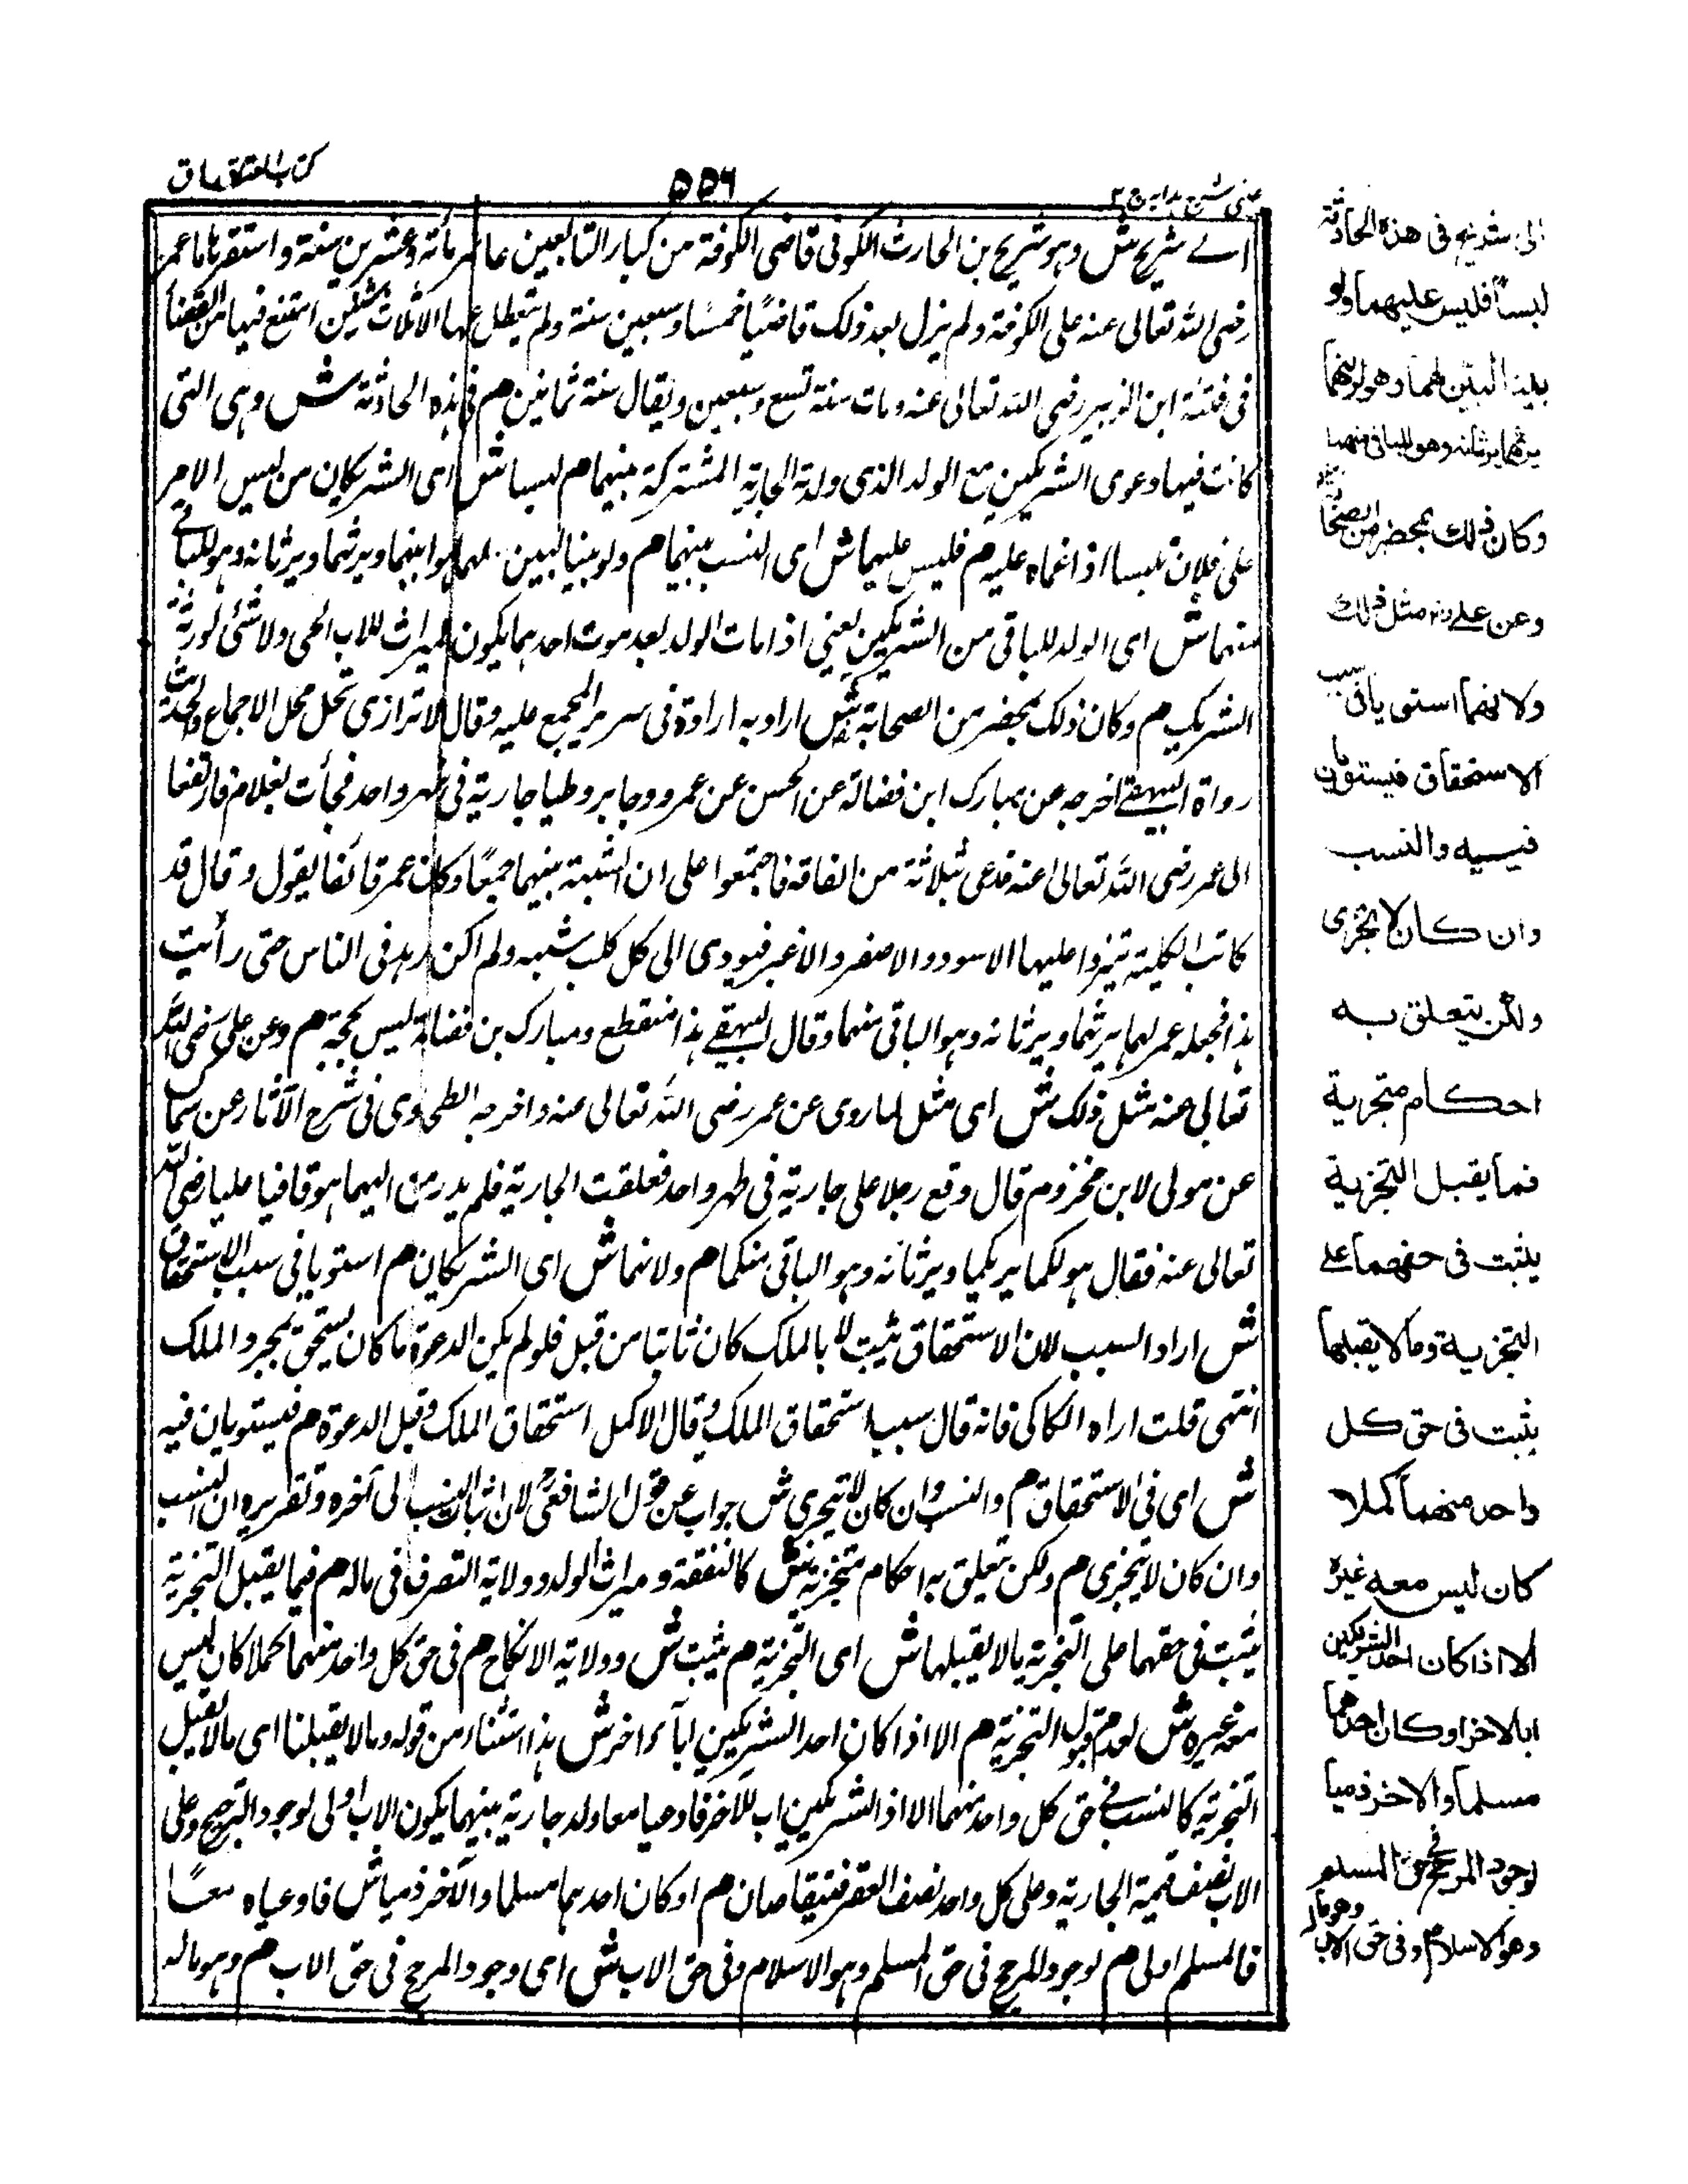 كتاب العتاق
۵۵۶
عینی شرح هدایه ج ۲
الے شريح ش وهو شريح بن الحارث الكوفى قاضى الكوفة من كبار التابعين عاش مائة وعشرين سنة و استقرها عمر
رضى الله تعالى عنه على الكوفة ولم يزل بعد ذلك قاضيًا خمسًا وسبعين سنة ولم يتعطل عنها الا ثلاث سنين امتنع فيها من القضأ
فى فتنة ابن الزبير رضى الله تعالى عنه ومات سنة تسع وسبعين ويقال سنة ثمانين م فى هذه الحادثة ش وهى التى
كانت فيها دعوى الشريكين مع الولد الذى ولدته الجارية المشتركة بينهما م لبسا ش اى الشريكان من لبس الامر
على فلان تلبسا اذا غماه عليه م فلبس عليهما ش اى النسب بينهما م ولو بينا لبين لهما هو ابنهما ويرثهما ويرثانه وهو للباقے
منهما ش اى الولد للباقى من الشريكين يعني اذا مات الولد بعد موت احدهما يكون الميراث للاب الحى ولا شئ لورثة
الشريك م وكان ذلك بمحضر من الصحابة ش اراد به اراوة فى سرير المجمع عليه وقال الاترازى تحل محل الاجماع والحديث
رواه البيهقے اخرجه عن مبارك ابن فضالة عن الحسن عن عمر ووجابر وطيا جارية فى طهر واحد فجأت بغلام فارتفعا
الى عمر رضى الله تعالى عنه فدعى ثلاثة من القافة فاجتمعوا على ان الشبه بينهما جميعًا وكان عمر قائفا يقول و قال قد
كانت الكلبة ينزوا عليها الاسود والاصفر والاغبر فيودى الى كل كلب شبهه ولم اكن اريه فى الناس حتى رأيت
هذا فجعله عمر لهما يرثهما ويرثانه وهو للباقى منهما وقال البيهقے هذا منقطع ومبارك بن فضالة ليس بحجة م وعن على رضى الله
تعالى عنه مثل ذلك ش اى مثل ما روى عن عمر رضى الله تعالى عنه واخرجه الطحاوى فى شرح الآثار عن سماك
عن مولى لابن مخزوم قال وقع رجلا على جارية فى طهر واحد فعلقت الجارية فلم يدر من ايهما هو فاتيا عليا رضى الله
تعالى عنه فقال هو لكما يرثكما ويرثانه وهو للباقى منكما م ولانهما ش اى الشريكان م استويا فى سبب الاستحقاق
ش اراد السبب لان الاستحقاق يثبت لا بالملك كان ثابتا من قبل فلو لم يكن الدعوة ما كان يستحق بمجرد الملك
انتهى قلت اراه الكاكى فانه قال سبب استحقاق الملك وقال الاكمل استحقاق الملك وقيل الدعوة م فيستويان فيه
ش اى فى الاستحقاق م والنسب وان كان لا يتجزى ش جواب عن قول الشافعىؒ لان اثبات النسب الى آخره وتقريره ان النسب
وان كان لا يتجزى م ولكن يتعلق به احكام متجزية ش كالنفقة و ميراث الولد وولاية التصرف فى ماله م فيما يقبل التجزية
يثبت فى حقهما على التجزية مالا يقبلها ش اى التجزية م يثبت ش وولاية الانكاح م فى حق كل واحد منهما كملا كان ليس
معه غيره ش لعدم قبول التجزية م الا اذا كان احد الشريكين ابا آخر ش هذا استثناء من قوله وما لا يقبلها اى مالا يقبل
التجزية كالنسب فى حق كل واحد منهما الا اذا الشريكين اب للآخر فادعيا معا ولد جارية بينهما يكون الاب اولى لوجود الترجيح وعلى
الاب نصف قيمة الجارية وعلى كل واحد نصف العقر فيتقاصان م او كان احدهما مسلما والآخر ذميا ش فادعياه معًا
فالمسلم اولى م لوجود المرجح فى حق المسلم وهو الاسلام وفى حق الاب ش اى وجود المرجح فى حق الاب م وهو ماله
الى شريح فى هذه الحادثة
لبسا فلبس عليهما ولو
بينا لبين لهما وهو ابنهما
يرثهما ويرثانه وهو للباقى منهما
وكان ذلك بمحضر من الصحابة
وعن على رض مثل ذلك
ولانهما استويا فى سبب
الاستحقاق فيستويان
فيه والنسب
وان كان لا يتجزى
ولكن يتعلق به
احكام متجزية
فما يقبل التجزية
يثبت فى حقهما على
التجزية وما لا يقبلها
يثبت فى حق كل
واحد منهما كملا
كان ليس معه غيره
الا اذا كان احد الشريكين
ابا للاخر او كان احدهما
مسلما والاخر ذميا
لوجود المرجح فى حق المسلم
وهو الاسلام وفى حق الاب وهو ماله